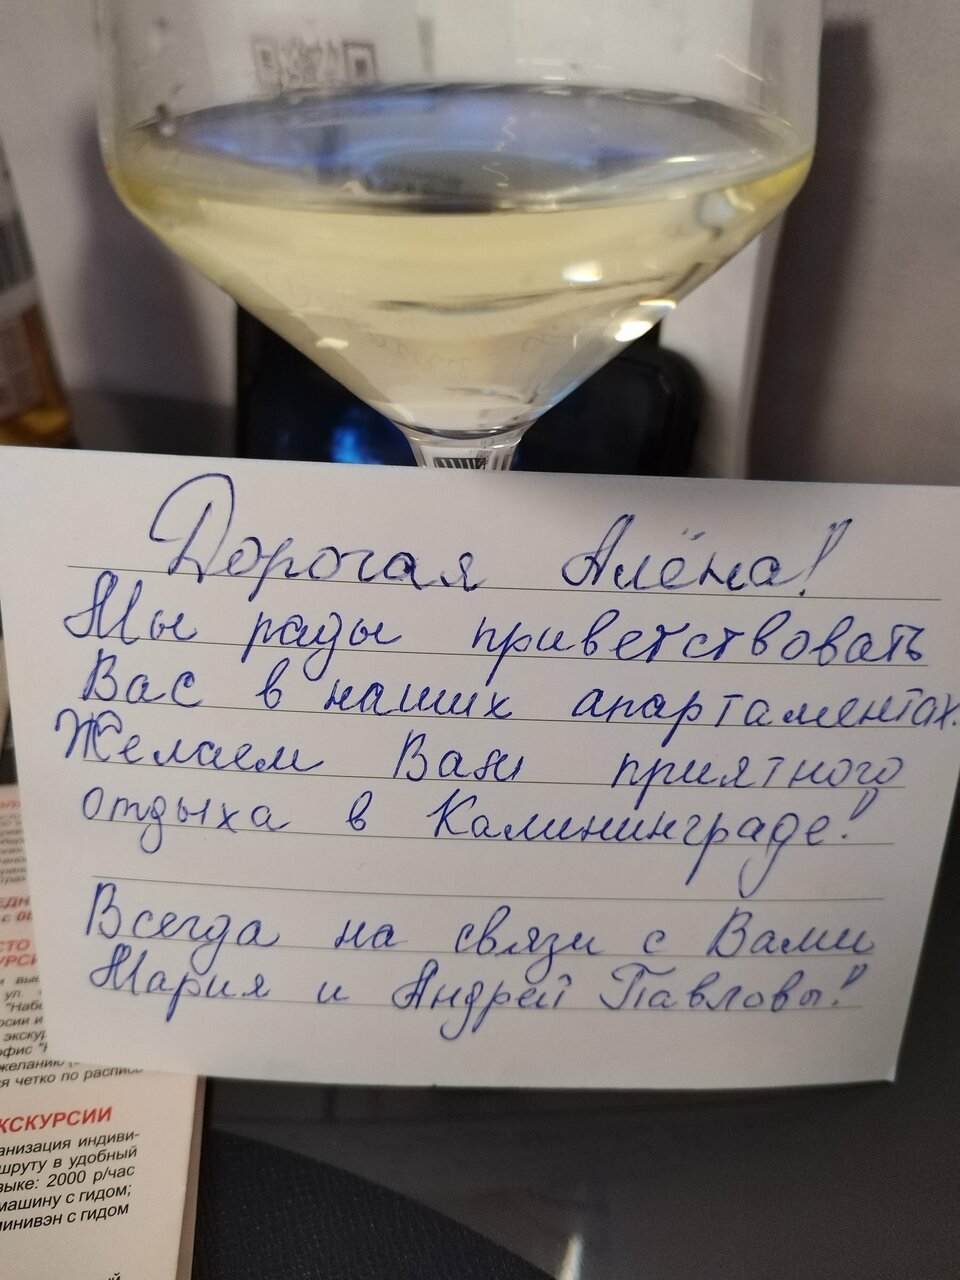 Дорогая Алёна!
Мы рады приветствовать
Вас в наших апартаментах.
Желаем Вам приятного
отдыха в Калининграде!
Всегда на связи с Вами
Мария и Андрей Павловы!
ул.
"Набе
экскур
офис "
желанию
четко по расписа
КСКУРСИИ
анизация индиви-
шруту в удобный
зыке: 2000 р/час
машину с гидом;
минивэн с гидом